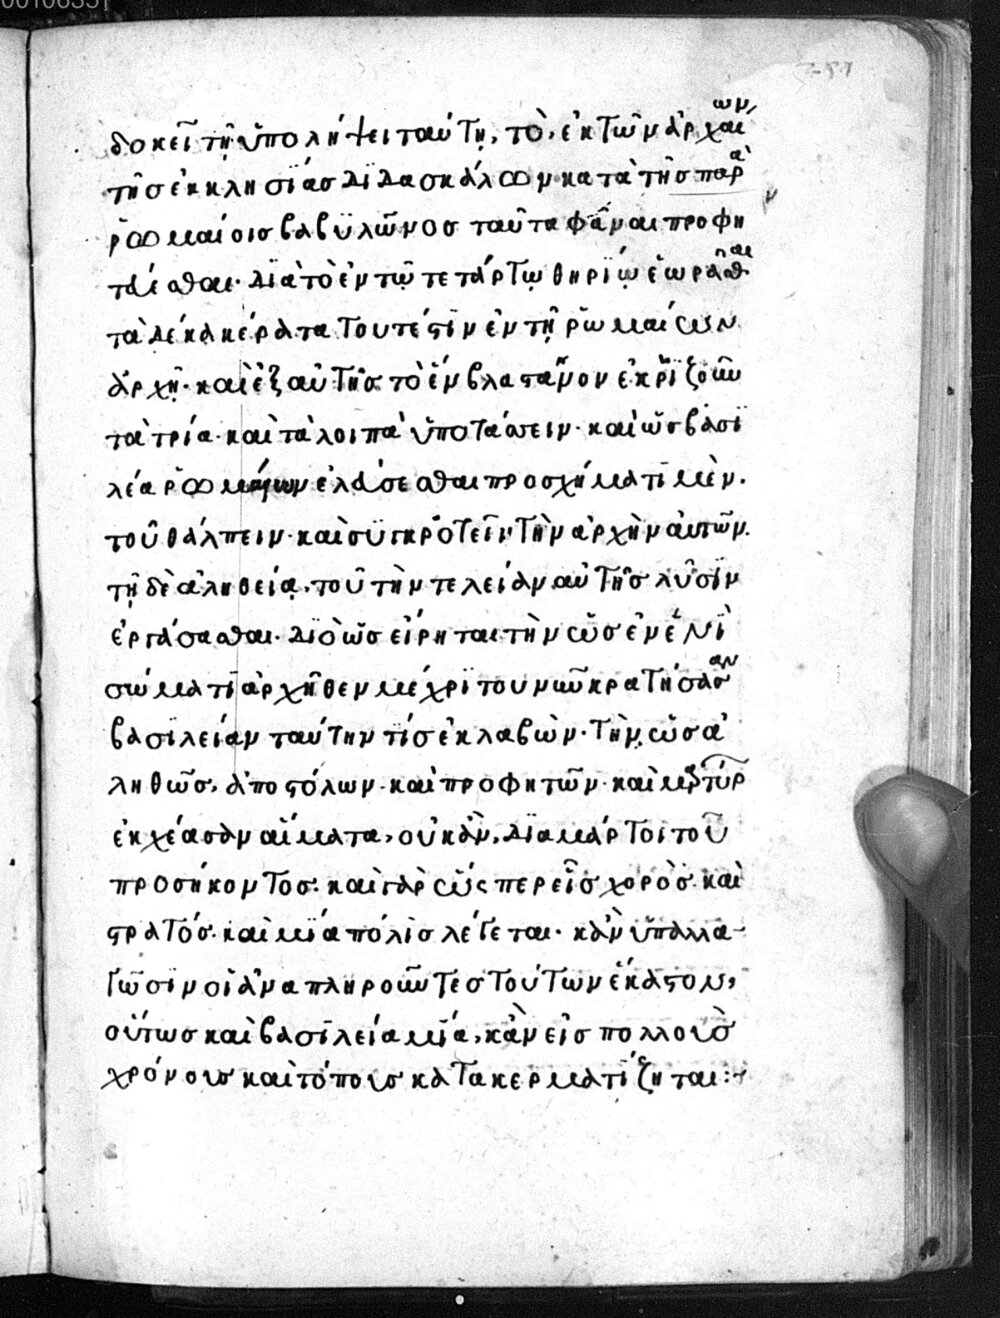 δοκεῖ τῇ ὑπολήψει ταύτῃ, τὸ, ἐκ τῶν ἀρχαίων
τῆς ἐκκλησίας διδασκάλων κατὰ τῆς παρὰ
ῥωμαίοις βαβυλῶνος ταῦτα φάναι προφη
τεύεσθαι· διὰ τὸ ἐν τῷ τετάρτῳ θηρίῳ ἑωρᾶσθαι
τὰ δέκα κέρατα τουτέστιν ἐν τῇ ῥωμαίων
ἀρχῇ· καὶ ἐξ αὐτῆς τὸ ἓν βλαστάνον ἐκριζοῦν
τὰ τρία· καὶ τὰ λοιπὰ ὑποτάσσειν· καὶ ὡς βασι
λέα ῥωμαίων ἐλεύσεσθαι προσχήματι μὲν.
τοῦ θάλπειν· καὶ συγκροτεῖν τὴν ἀρχὴν αὐτῶν.
τῇ δὲ ἀληθείᾳ. τοῦ τὴν τελείαν αὐτῆς λῦσιν
ἐργάσασθαι. διὸ ὡς εἴρηται τὴν ὡς ἐν ἑνὶ
σώματι ἀρχῆθεν μέχρι τοῦ νῦν κρατήσασαν
βασιλείαν ταύτην τίς ἐκλαβὼν· τὴν ὡς ἀ
ληθῶς, ἀποστόλων· καὶ προφητῶν· καὶ μαρτύρ
ἐκχέασαν αἵματα, οὐκ ἂν, διαμάρτοι τοῦ
προσήκοντος· καὶ γὰρ ὥσπερ εἷς χορὸς· καὶ
στρατός· καὶ μία πόλις λέγεται· κἂν ὑπαλλα-
γῶσιν οἱ ἀναπληροῦντες τούτων ἕκαστον,
οὕτως καὶ βασιλεία μία, κἂν εἰς πολλοὺς
χρόνους καὶ τόπους κατακερματίζηται:-